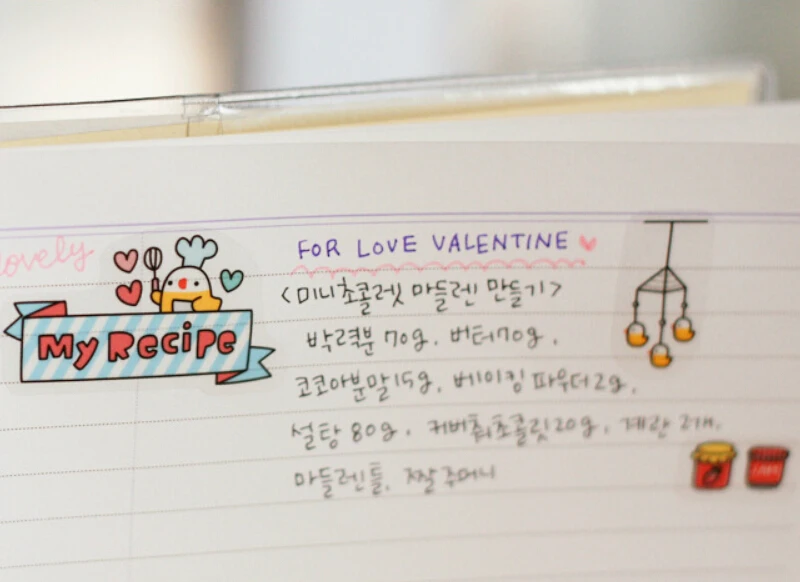 lovely
FOR LOVE VALENTINE
My Recipe
<미니초콜렛 마들렌 만들기>
박력분 70g, 버터70g,
코코아분말15g, 베이킹 파우더2g,
설탕 80g, 커버춰초콜릿20g, 계란 2개,
마들렌틀, 짤주머니